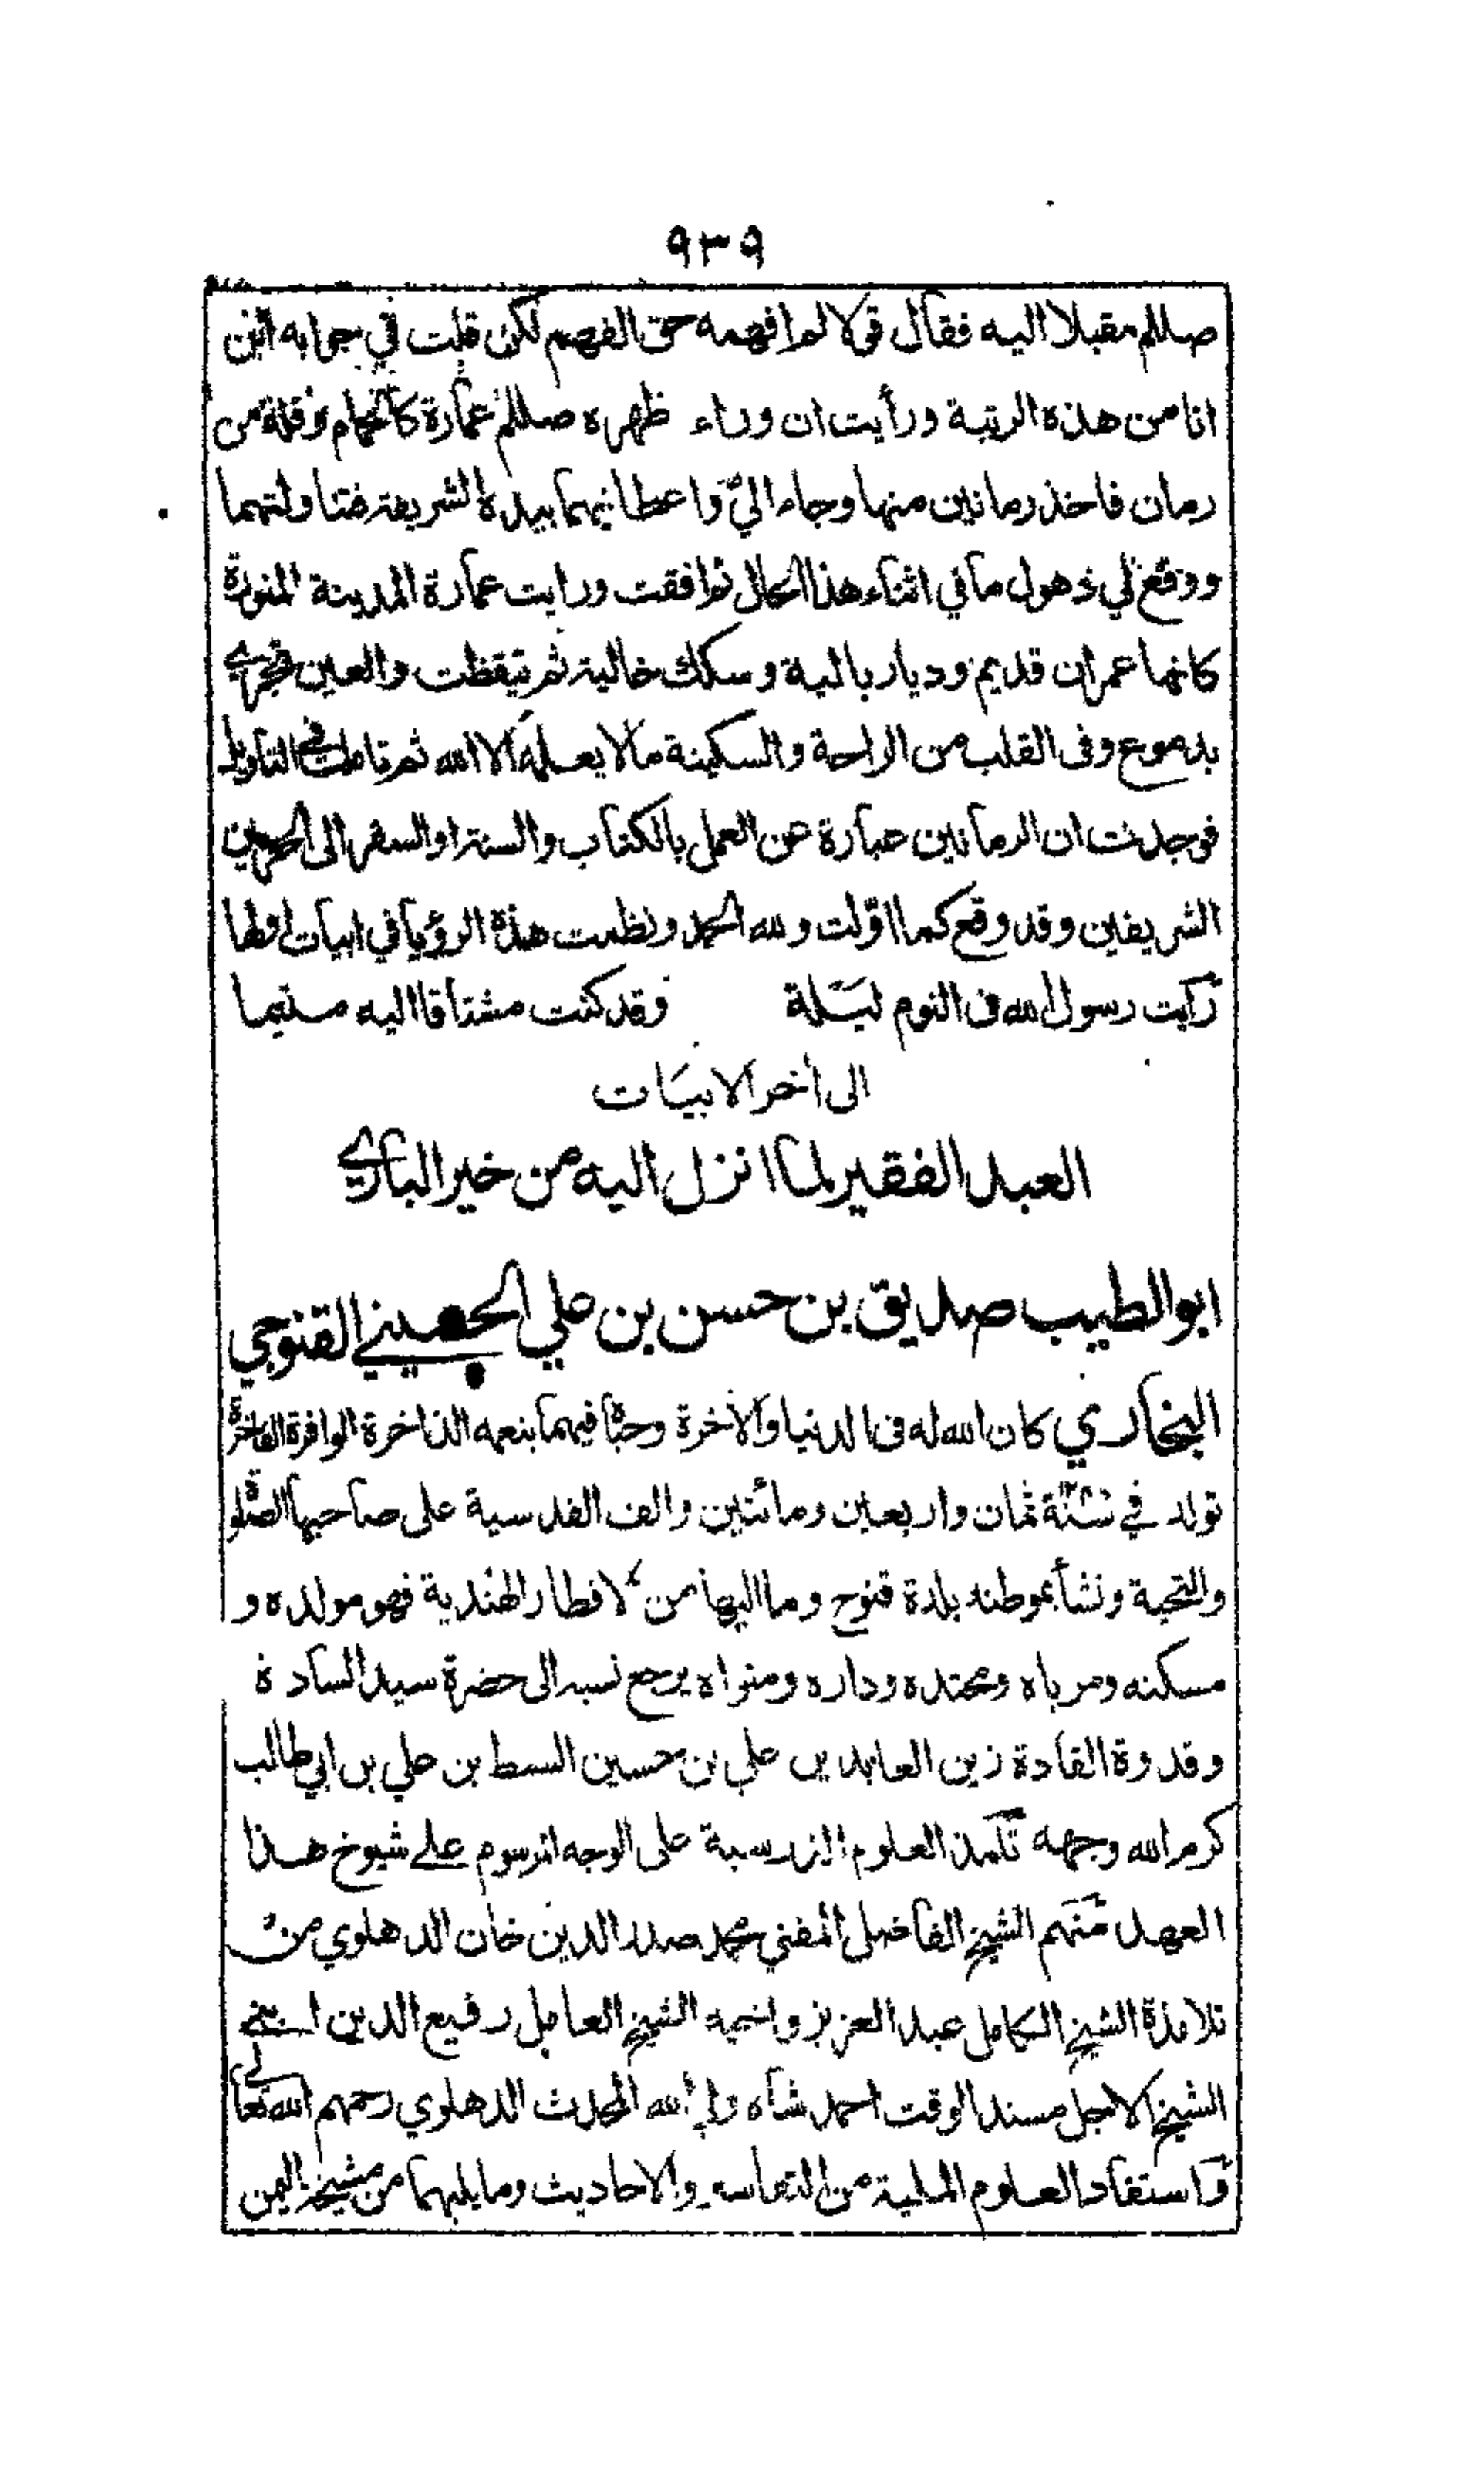 ٩٣٩
صللم مقبلا اليه فقال قولا لم افهمه حق الفهم لكن قلت في جوابه اين
انا من هذه الرتبة ورأيت ان وراء ظهره صللم عمارة كالحمام وقلة من
رمان فاخذ رمانين منها وجاء اليّ واعطانيهما بيده الشريفة فتناولتهما
ووقع لي ذهول ما في اثناء هذا الحال ثم افقت ورايت عمارة المدينة المنورة
كانها عمران قديم وديار بالية وسكك خالية ثم تيقظت والعين تجري
بدموع وفى القلب من الراحة والسكينة ما لا يعلمه الا الله ثم تاملت في التاويل
فوجدت ان الرمانين عبارة عن العمل بالكتاب والسنة او السفر الى الحرمين
الشريفين وقد وقع كما اوّلت ولله الحمد ونظمت هذة الرؤيا في ابيات اولها
رأيت رسول الله فى النوم ليلة وقد كنت مشتاقا اليه متيما
الى أخر الابيات
العبد الفقير لما انزل اليه من خير الباري
ابو الطيب صديق بن حسن بن علي الحسيني القنوجي
البخاري كان الله له فى الدنيا والأخرة وحباه فيهما بنعمه الذاخرة الوافرة الفاخرة
تولد في سنة ثمان واربعين ومائتين والف القدسية على صاحبها الصلوة
والتحية ونشأ بموطنه بلدة قنوج وما اليها من الاقطار الهندية فهو مولده و
مسكنه ومرباه ومحتده وداره ومثواه يرجع نسبه الى حضرة سيد السادة
وقدوة القادة زين العابدين علي بن حسين السبط بن علي بن ابي طالب
كرم الله وجهه تلمذ العلوم الدرسية على الوجه المرسوم على شيوخ هذا
العهد منهم الشيخ الفاضل المفتي محمد صدر الدين خان الدهلوي من
تلامذة الشيخ الكامل عبد العزيز واخيه الشيخ العامل رفيع الدين ابني
الشيخ الاجل مسند الوقت احمد شاه ولي الله المحدث الدهلوي رحمهم الله تعالى
واستفاد العلوم الملية من التفاسير والاحاديث وما يليهما من مشيخة اليمن